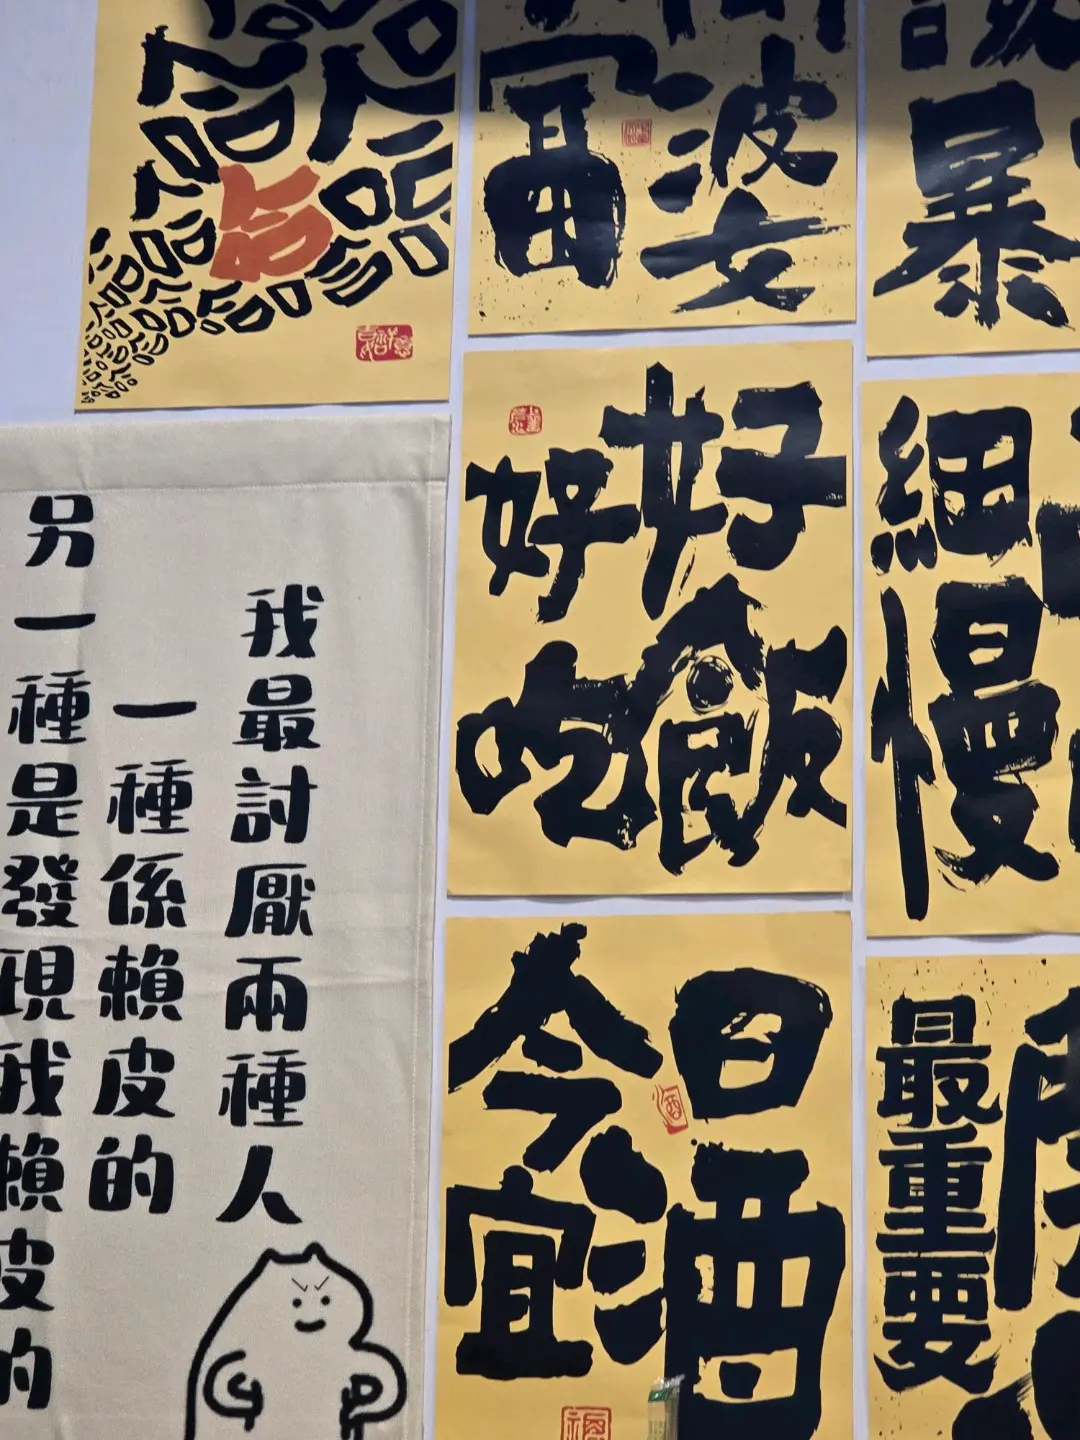 婆
暴
好好
吃飯
細
慢
今日
宜酒
最重要
我最討厭兩種人
一種係賴皮的
另一種是發現我賴皮的